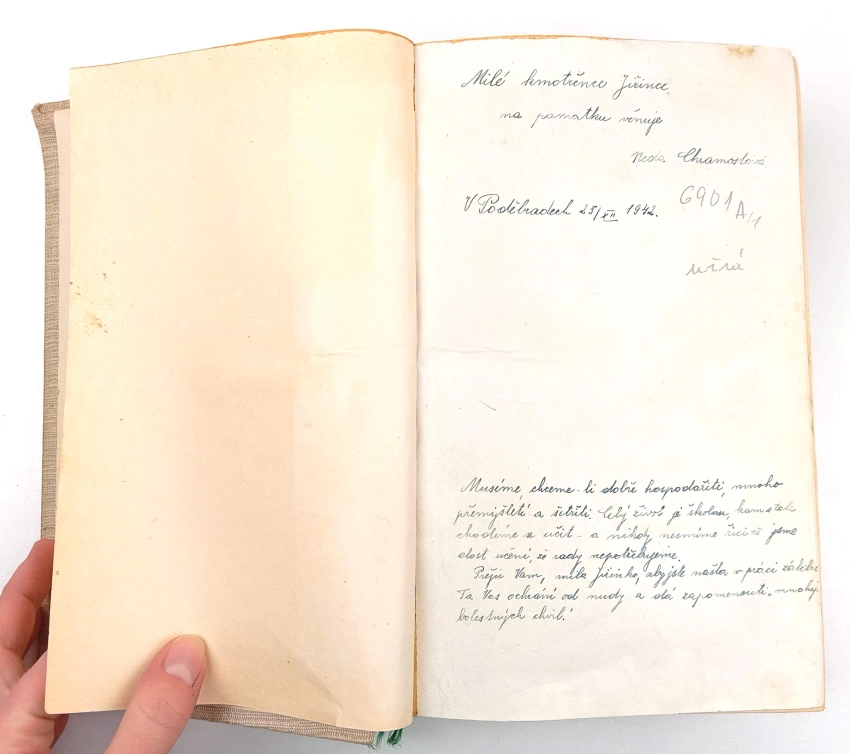 Milé kmotřence Jiřince,
na památku věnuje
Neda Chramostová
V Poděbradech 25/XII 1942.
6901 A/1
Musíme, chceme-li dobře hospodařiti, mnoho
přemýšleti a šetřiti. Celý život je školou, kam stále
chodíme se učit - a nikdy nesmíme říci že jsme
dost učení, že rady nepotřebujeme.
Přeji Vám, milá Jiřinko, aby jste našla v práci zálibu
Ta Vás ochrání od nudy a dá zapomenouti mnohý
bolestných chvil!